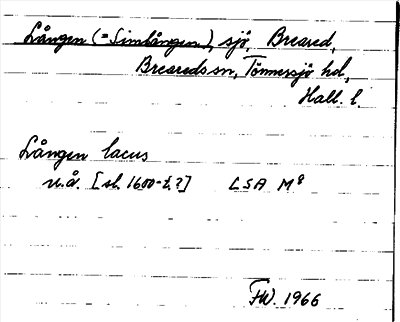 Lången (= Simlången), sjö, Breared,
Breareds sn, Tönnersjö hd,
Hall. l.
Lången lacus
u.å. [sl. 1600-t.?] LSA M⁸
FW. 1966